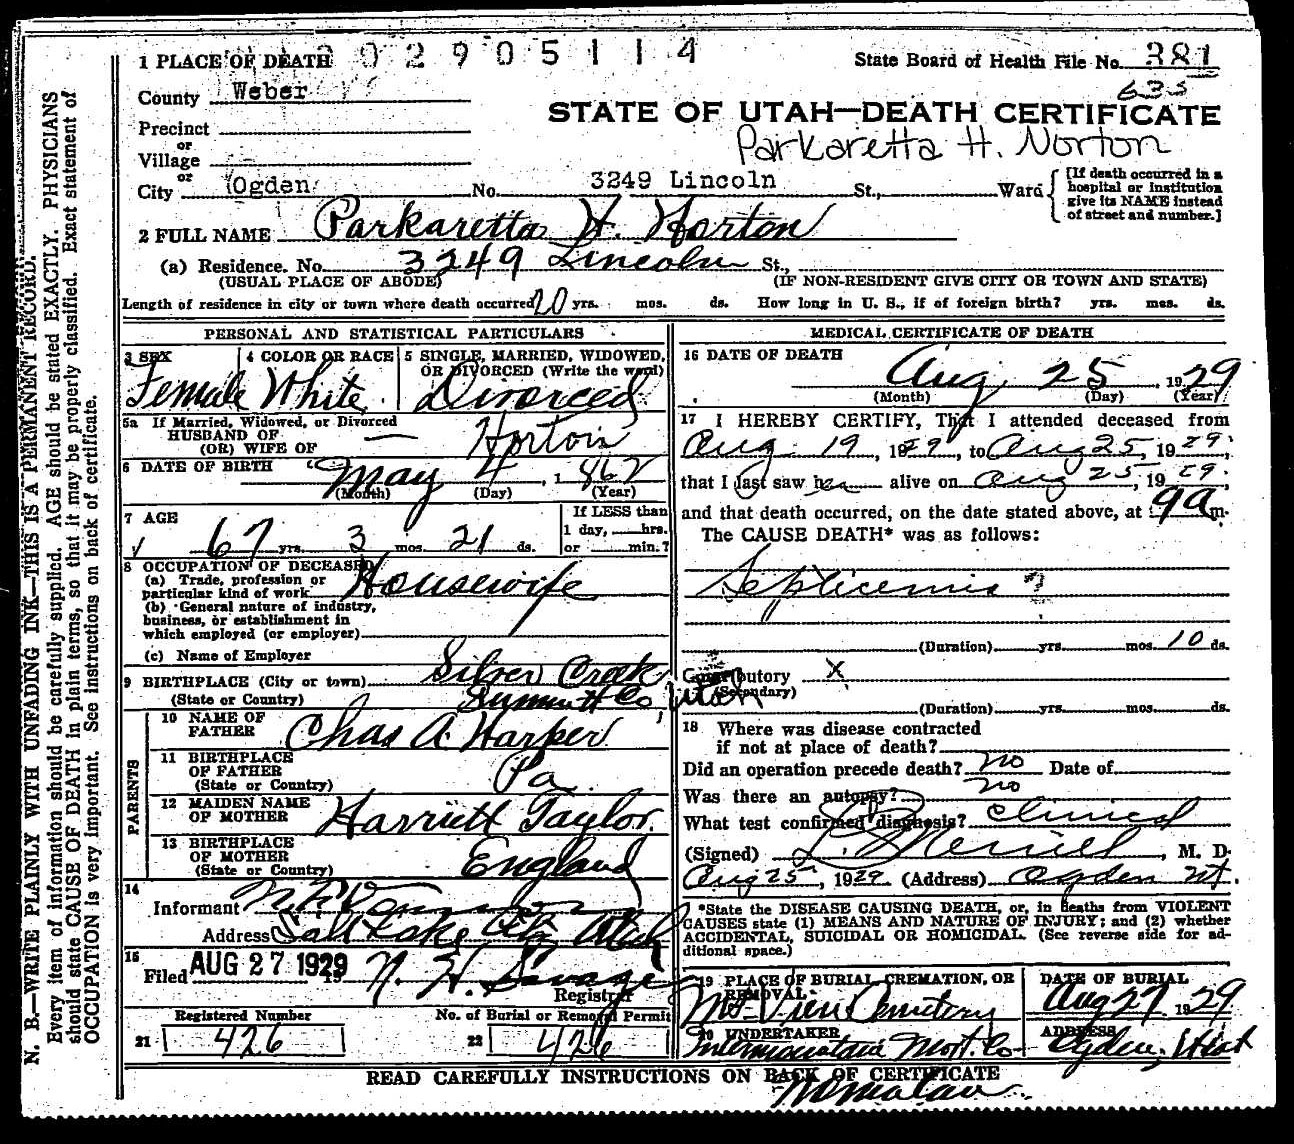 2 9 0 5 1 1 4
1 PLACE OF DEATH
State Board of Health File No. 381
635
County Weber
STATE OF UTAH—DEATH CERTIFICATE
Precinct
or
Parkaretta H. Norton
Village
or
City Ogden No. 3249 Lincoln St., Ward
[If death occurred in a hospital or institution give its NAME instead of street and number.]
2 FULL NAME Parkaretta H. Horton
(a) Residence. No. 3249 Lincoln St.,
(USUAL PLACE OF ABODE) (IF NON-RESIDENT GIVE CITY OR TOWN AND STATE)
Length of residence in city or town where death occurred 20 yrs. mos. ds. How long in U. S., if of foreign birth? yrs. mos. ds.
PERSONAL AND STATISTICAL PARTICULARS
3 SEX
Female
4 COLOR OR RACE
White
5 SINGLE, MARRIED, WIDOWED,
OR DIVORCED (Write the word)
Divorced
5a If Married, Widowed, or Divorced
HUSBAND OF
(OR) WIFE OF — Horton
6 DATE OF BIRTH May 4, 1862
(Month) (Day) (Year)
7 AGE
67 yrs. 3 mos. 21 ds.
If LESS than
1 day, hrs.
or min.?
8 OCCUPATION OF DECEASED
(a) Trade, profession or
particular kind of work Housewife
(b) General nature of industry,
business, or establishment in
which employed (or employer)
(c) Name of Employer
9 BIRTHPLACE (City or town) Silver Creek
(State or Country) Summitt Co Utah
PARENTS
10 NAME OF
FATHER Chas A. Harper
11 BIRTHPLACE
OF FATHER Pa
(State or Country)
12 MAIDEN NAME
OF MOTHER Harriett Taylor
13 BIRTHPLACE
OF MOTHER England
(State or Country)
14
Informant
Address Salt Lake City Utah
15
Filed AUG 27 1929 N. H. Savage
19
Registrar
Registered Number
21 426
No. of Burial or Removal Permit
22 426
MEDICAL CERTIFICATE OF DEATH
16 DATE OF DEATH
Aug 25, 1929
(Month) (Day) (Year)
17 I HEREBY CERTIFY, That I attended deceased from
Aug 19, 1929, to Aug 25, 1929;
that I last saw her alive on Aug 25, 1929;
and that death occurred, on the date stated above, at 9a m.
The CAUSE DEATH* was as follows:
Septicemia ?
(Duration) yrs. mos. 10 ds.
Contributory X
(Secondary)
(Duration) yrs. mos. ds.
18 Where was disease contracted
if not at place of death?
Did an operation precede death? no Date of
Was there an autopsy? no
What test confirmed diagnosis? Clinical
(Signed) Merrill, M. D.
Aug 25, 1929 (Address) Ogden Ut.
*State the DISEASE CAUSING DEATH, or, in deaths from VIOLENT
CAUSES state (1) MEANS AND NATURE OF INJURY; and (2) whether
ACCIDENTAL, SUICIDAL OR HOMICIDAL. (See reverse side for ad-
ditional space.)
19 PLACE OF BURIAL, CREMATION, OR
REMOVAL
Mt View Cemetery
DATE OF BURIAL
Aug 27 1929
20 UNDERTAKER
Intermountain Mort. Co
ADDRESS
Ogden, Utah
READ CAREFULLY INSTRUCTIONS ON BACK OF CERTIFICATE
N. B.—WRITE PLAINLY WITH UNFADING INK—THIS IS A PERMANENT RECORD.
Every item of information should be carefully supplied. AGE should be stated EXACTLY. PHYSICIANS
should state CAUSE OF DEATH in plain terms, so that it may be properly classified. Exact statement of
OCCUPATION is very important. See instructions on back of certificate.